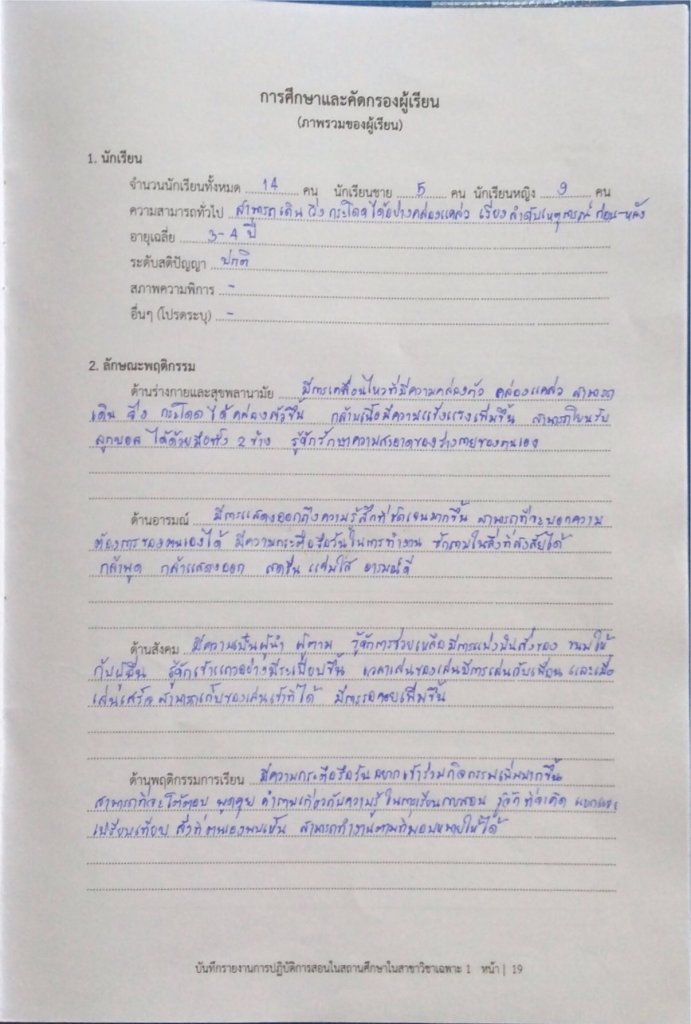 การศึกษาและคัดกรองผู้เรียน
(ภาพรวมของผู้เรียน)
1. นักเรียน
จำนวนนักเรียนทั้งหมด 14 คน นักเรียนชาย 5 คน นักเรียนหญิง 9 คน
ความสามารถทั่วไป สามารถเดิน วิ่ง กระโดดได้อย่างคล่องแคล่ว เรียงลำดับเหตุการณ์ ก่อน-หลัง
อายุเฉลี่ย 3-4 ปี
ระดับสติปัญญา ปกติ
สภาพความพิการ -
อื่นๆ (โปรดระบุ) -
2. ลักษณะพฤติกรรม
ด้านร่างกายและสุขพลานามัย มีการเคลื่อนไหวที่มีความคล่องตัว คล่องแคล่ว สามารถ
เดิน วิ่ง กระโดด ได้คล่องตัวขึ้น กล้ามเนื้อมีความแข็งแรงเพิ่มขึ้น สามารถโยนรับ
ลูกบอล ได้ด้วยมือทั้ง 2 ข้าง รู้จักรักษาความสะอาดของร่างกายของตนเอง
ด้านอารมณ์ มีการแสดงออกถึงความรู้สึกที่ชัดเจนมากขึ้น สามารถที่จะบอกความ
ต้องการของตนเองได้ มีความกระตือรือร้นในการทำงาน ซักถามในสิ่งที่สงสัยได้
กล้าพูด กล้าแสดงออก สดชื่น แจ่มใส อารมณ์ดี
ด้านสังคม มีความเป็นผู้นำ ผู้ตาม รู้จักการช่วยเหลือมีการแบ่งปันสิ่งของ ขนมให้
กับผู้อื่น รู้จักเข้าแถวอย่างมีระเบียบขึ้น เวลาเล่นของเล่นมีการเล่นกับเพื่อน และเมื่อ
เล่นเสร็จ สามารถเก็บของเล่นเข้าที่ได้ มีการรอคอยเพิ่มขึ้น
ด้านพฤติกรรมการเรียน มีความกระตือรือร้นอยากเข้าร่วมกิจกรรมเพิ่มมากขึ้น
สามารถที่จะโต้ตอบ พูดคุย คำถามเกี่ยวกับความรู้ในการเรียนการสอน รู้จักที่จะคิด
เปรียบเทียบ สิ่งที่ตนเองพบเห็น สามารถทำงานตามที่มอบหมายให้ได้
บันทึกรายงานการปฏิบัติการสอนในสถานศึกษาในสาขาวิชาเฉพาะ 1 หน้า | 19